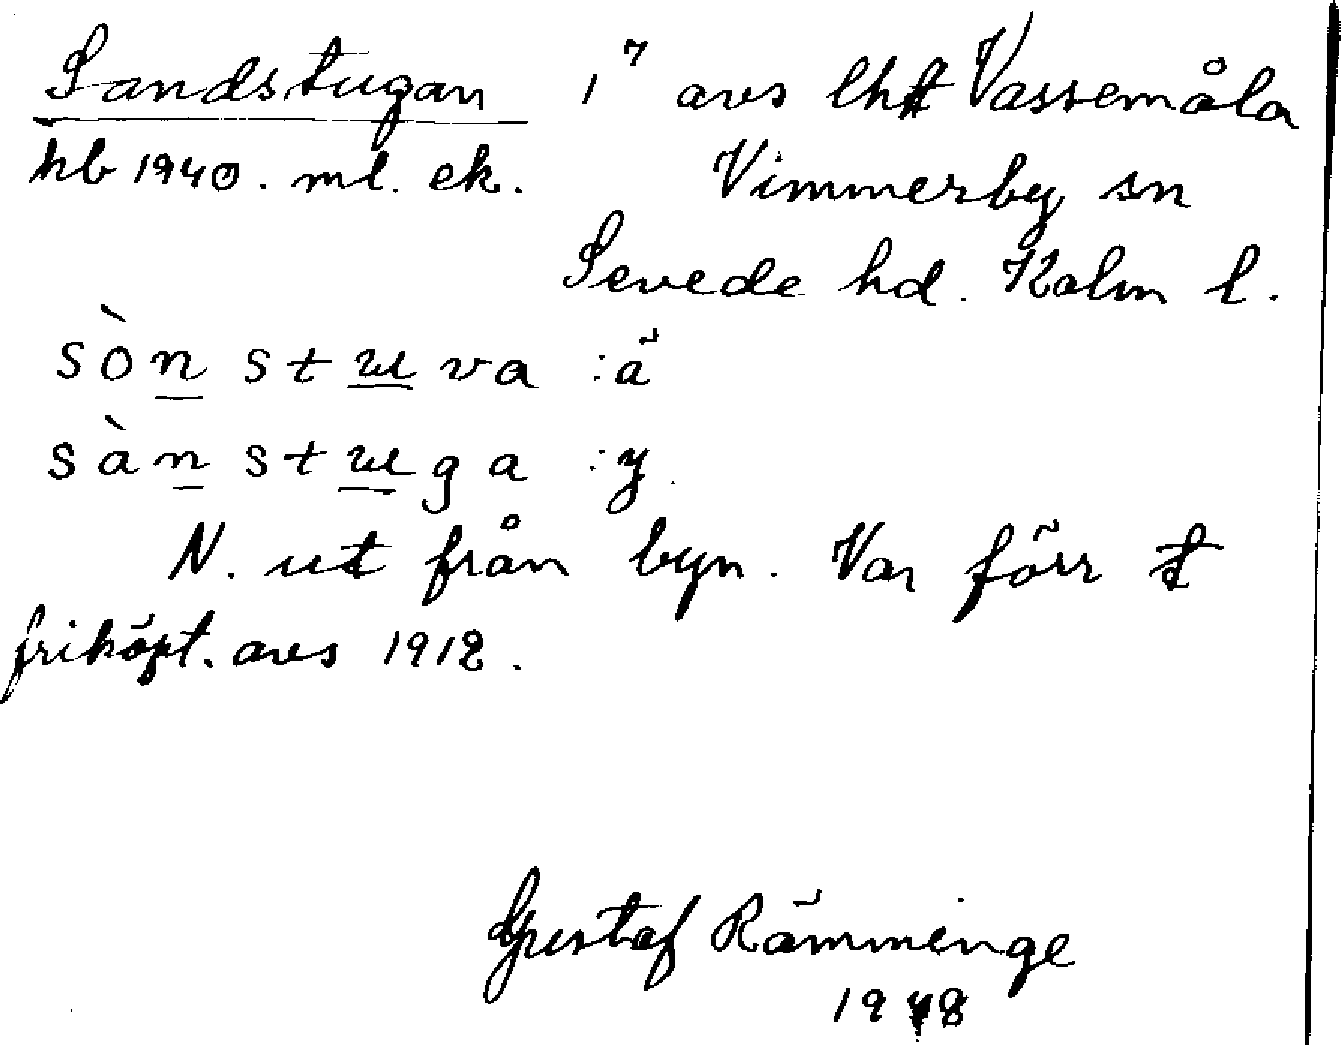 Sandstugan 1⁷ avs lht Vassemåla
hb 1940. ml. ek. Vimmerby sn
Sevede hd. Kalm l.
sòn stuva :ä
sàn stuga :y
N. ut från byn. Var förr t
friköpt. avs 1912.
Gustaf Rämminge
1948